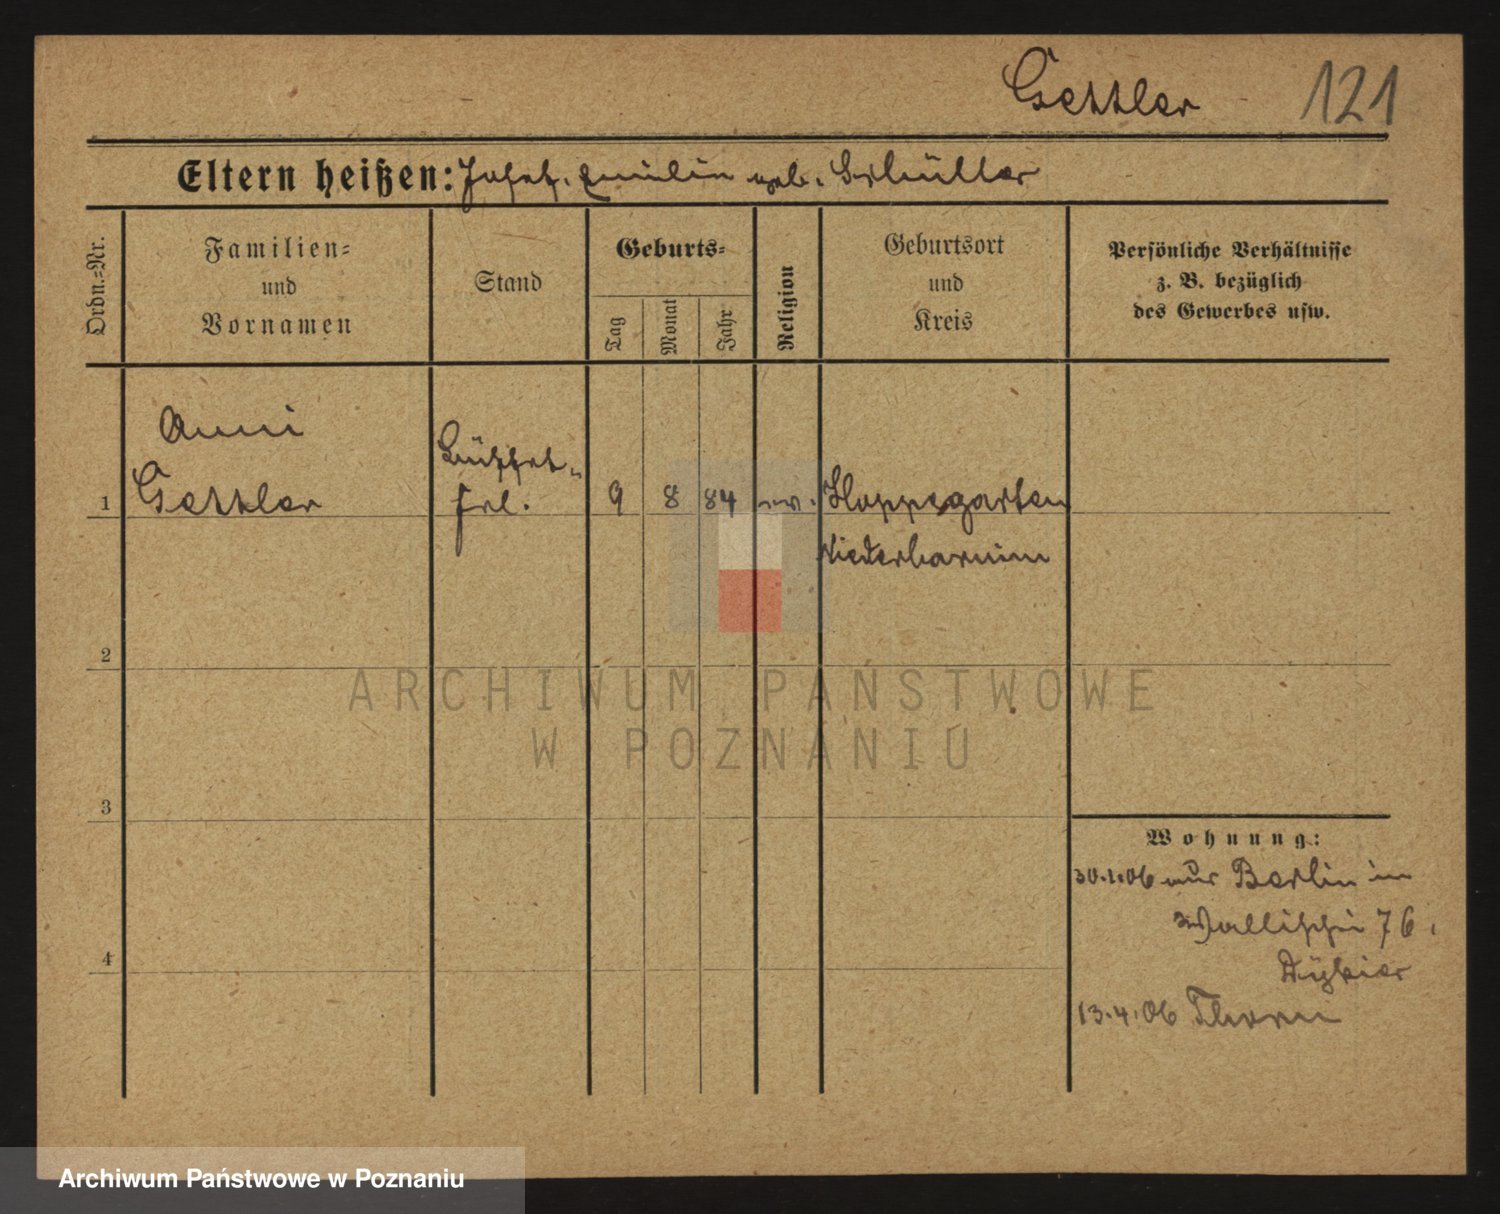 Gettler 121
Eltern heißen: Josef. Emilie geb. Schüller
Ordn.=Nr.
Familien=
und
Vornamen
Stand
Geburts=
Tag
Monat
Jahr
Religion
Geburtsort
und
Kreis
Persönliche Verhältnisse
z. B. bezüglich
des Gewerbes usw.
Anni
Büffet-
1 Gettler frl. 9 8 84 ev. Hoppegarten
Niederbarnim
2
ARCHIWUM PAŃSTWOWE
W POZNANIU
3
Wohnung:
30.1.06 aus Berlin in
Wallischei 76.
4
13.4.06 Thorn
Archiwum Państwowe w Poznaniu